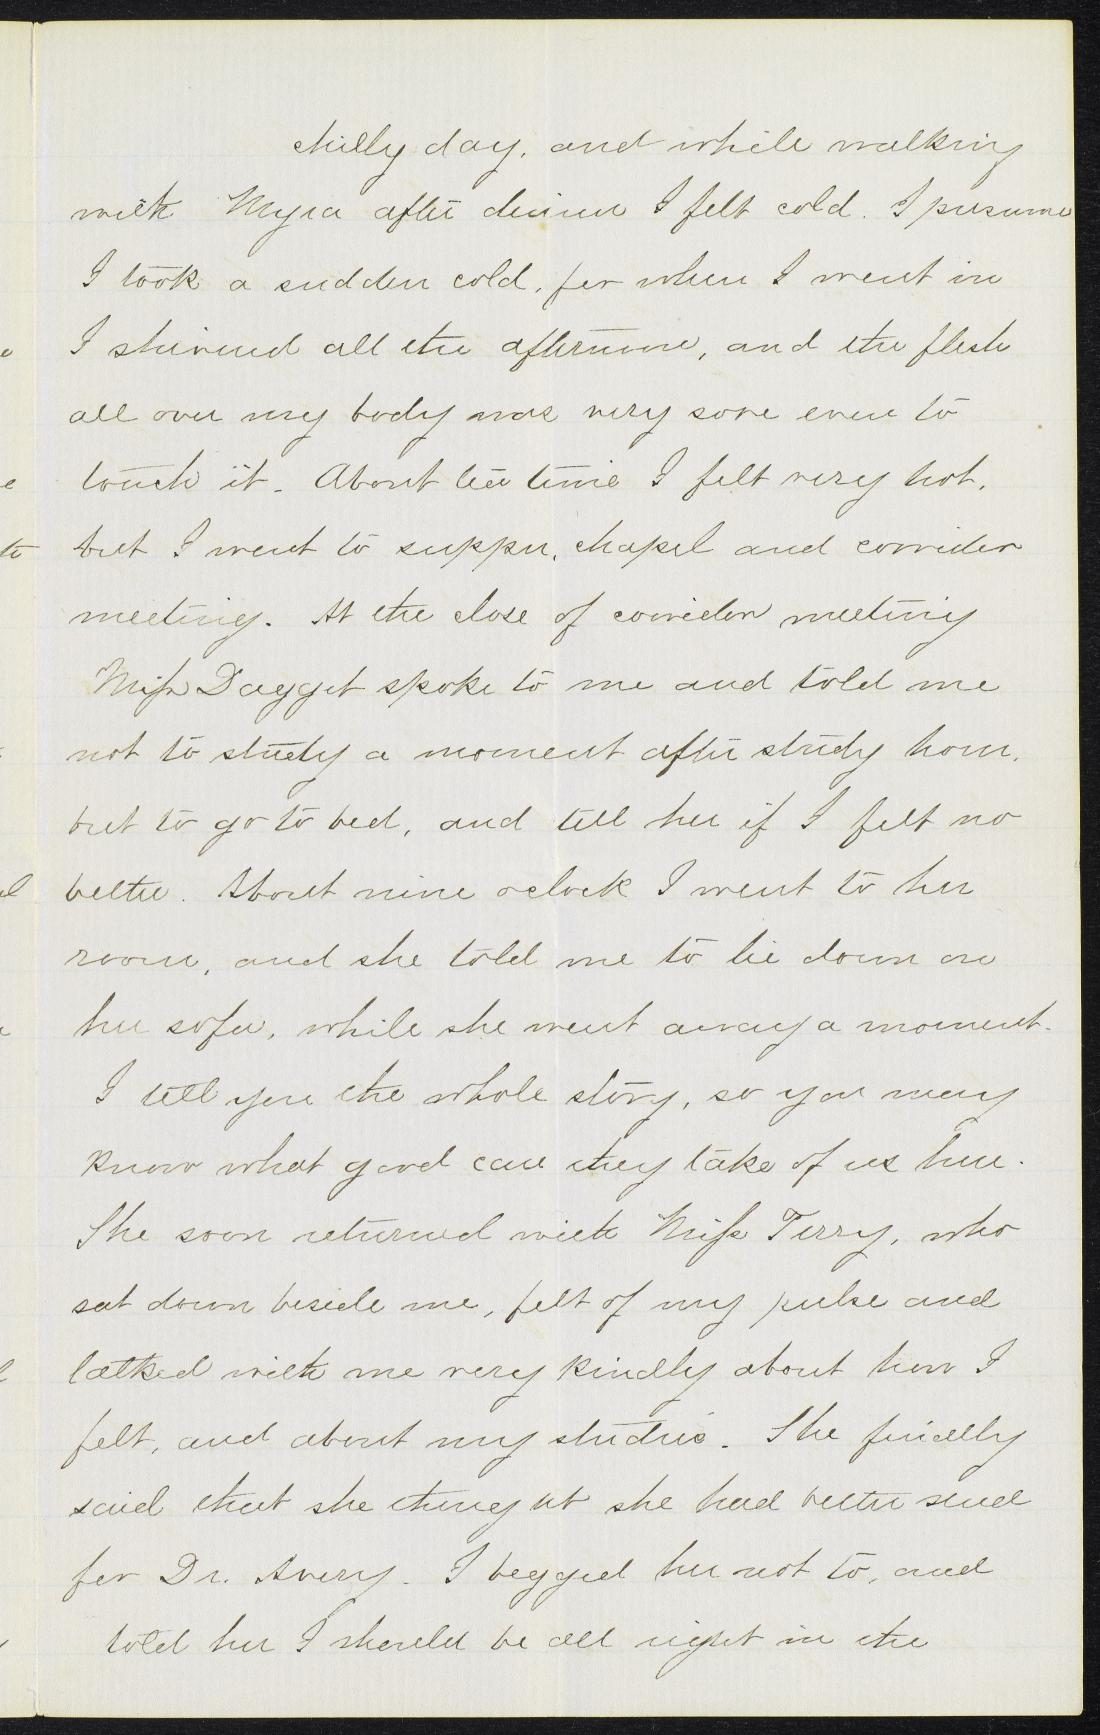 chilly day, and while walking
with Myra after dinner I felt cold. I presume
I took a sudden cold, for when I went in
I shivered all the afternoon, and the flesh
all over my body was very sore even to
touch it. About tea time I felt very hot,
but I went to supper, chapel and corridor
meeting. At the close of corridor meeting
Miss Dagget spoke to me and told me
not to study a moment after study hour,
but to go to bed, and tell her if I felt no
better. About nine oclock I went to her
room, and she told me to lie down on
her sofa, while she went away a moment.
I tell you the whole story, so you may
know what good care they take of us here.
She soon returned with Miss Terry, who
sat down beside me, felt of my pulse and
talked with me very kindly about how I
felt, and about my studies. She finally
said that she thought she had better send
for Dr. Avery. I begged her not to, and
told her I should be all right in the